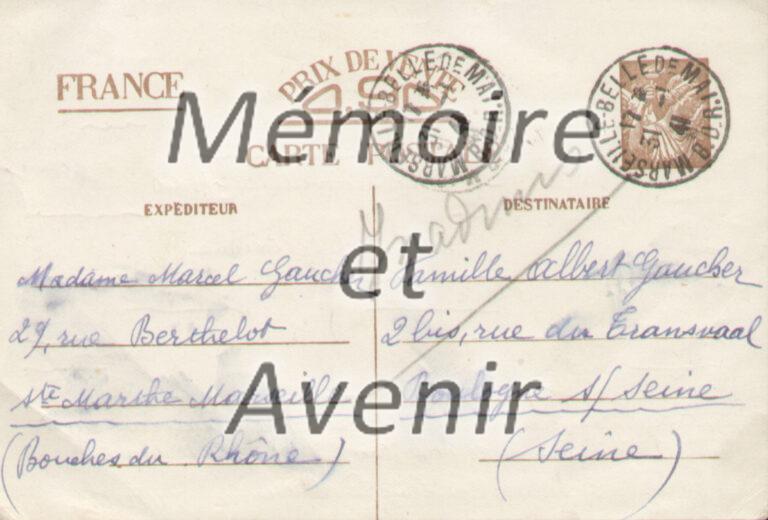 FRANCE
PRIX DE VENTE
0.90
CARTE POSTALE
MARSEILLE-BELLE DE MAI
B. D. R.
17
31
41
MARSEILLE-BELLE DE MAI. B. D. R.
17
31
41
Mémoire
et
Avenir
EXPÉDITEUR
Madame Marcel Gaucher
29, rue Berthelot
Ste Marthe Marseille
(Bouches du Rhône)
DESTINATAIRE
Famille Albert Gaucher
2 bis, rue du Transvaal
Boulogne s/ Seine
(Seine)
Inadmis